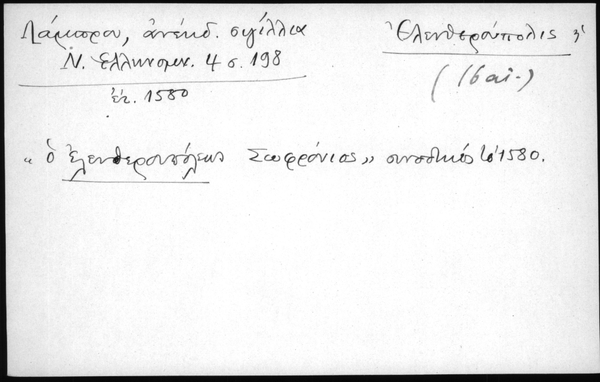 Λάμπρου, ἀνέκδ. σιγίλλια
Ν. Ἑλληνομν. 4 σ. 198
ἔτ. 1580
Ἐλευθερούπολις
(16 αἰ.)
"ὁ Ἐλευθερουπόλεως Σωφρόνιος" συνοδικῶς 1580.